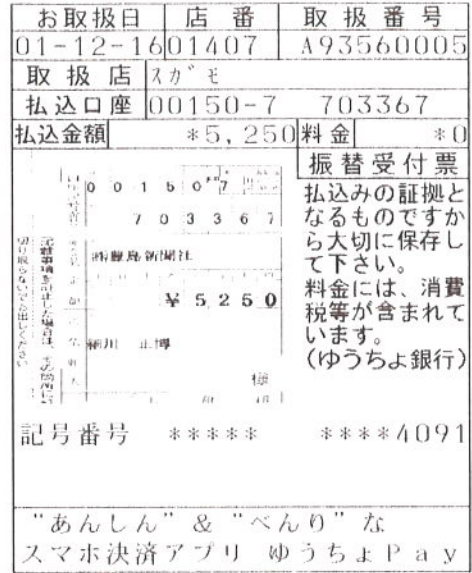 お取扱日 店番 取扱番号
01-12-16 01407 A93560005
取扱店 スガモ
払込口座 00150-7 703367
払込金額 *5,250 料金 *0
振替受付票
払込みの証拠と
なるものですか
ら大切に保存し
て下さい。
料金には、消費
税等が含まれて
います。
(ゆうちょ銀行)
0 0 1 5 0 7
7 0 3 3 6 7
㈱豊島新聞社
¥5250
細川 正博
様
記載事項を訂正した場合は、その箇所に
切り取らないでお出しください
記号番号 ***** ****4091
"あんしん" & "べんり" な
スマホ決済アプリ ゆうちょPay